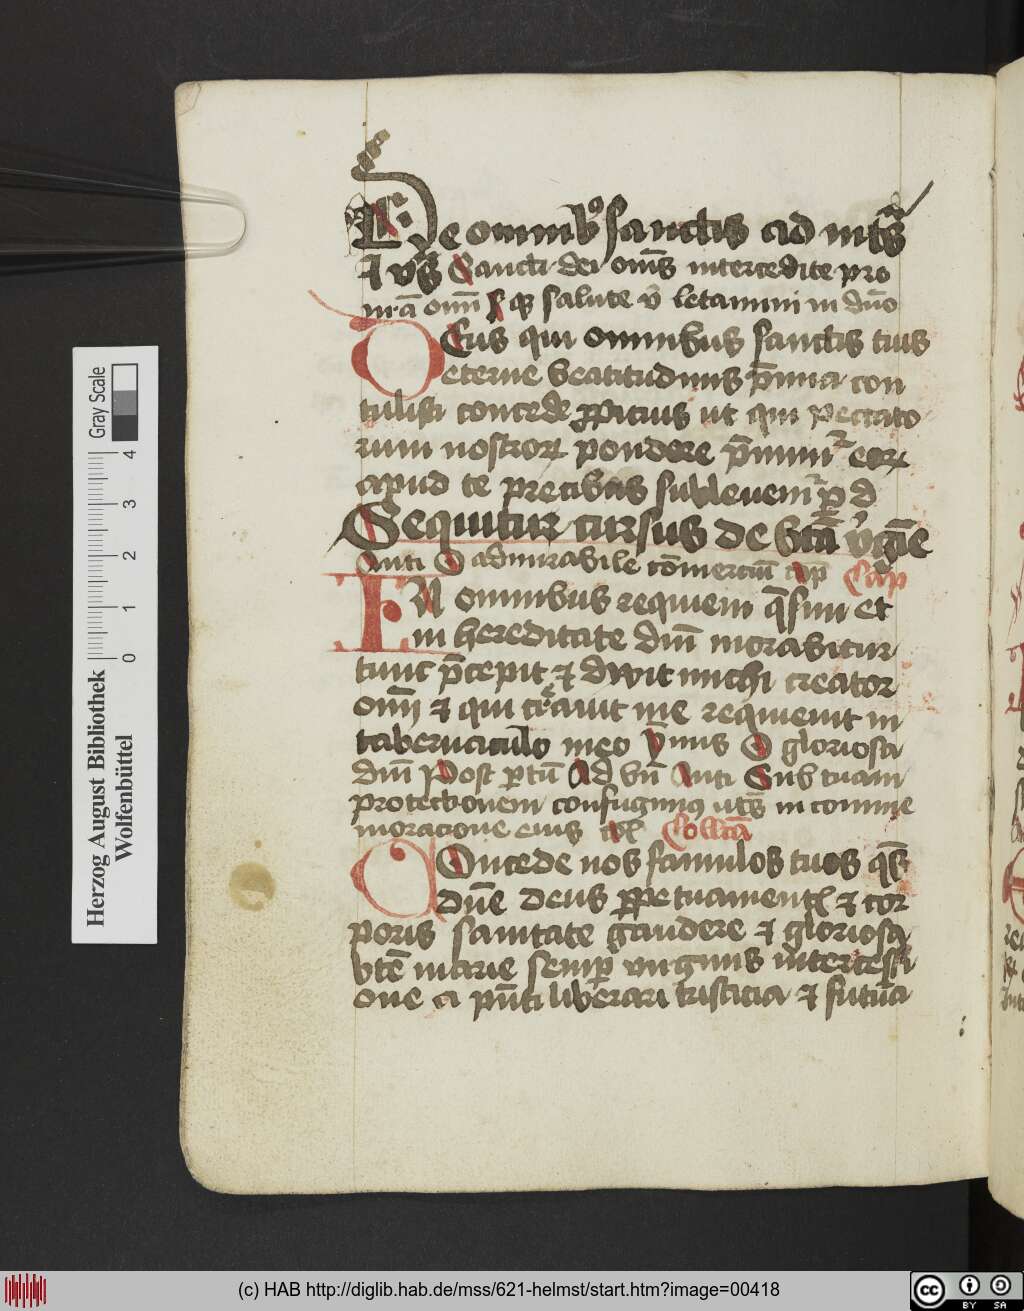 De omnib9 sanctis ad mts
et vs Sancti dei oms intercedite pro
nrā omī sqꝫ salute v̄ letamini in dno
Deus qui omnibus sanctis tuis
eterne beatitudinis p̄mia con
tulisti concede ꝓpicius ut qui peccato
rum nostroꝝ pondere p̄mim᷑ eoꝝ
apud te precibus subleuem᷑ ꝑ d
Sequitur cursus de btā v̓gīe
Anti O admirabile cōmerciū Cap
IN omnibus requiem q̄siui et
in hereditate dnī morabitur
tunc p̄cepit et dixit michi creator
omī et qui creauit me requieuit in
tabernaculo meo ymnis O gloriosa
dnī Post ꝑtū Ad bn̄ Anti Sub tuam
protectionem confugimꝰ uts in comme
moracione eius Collcā
Concede nos famulos tuos qs
dne deus ꝑpetua mentꝭ et cor
poris sanitate gaudere et gloriosa
bte marie semꝑ virginis intercessi
one a pn̄ti liberari tristicia et futura
Gray Scale
0 1 2 3 4
Herzog August Bibliothek
Wolfenbüttel
(c) HAB http://diglib.hab.de/mss/621-helmst/start.htm?image=00418
cc BY SA